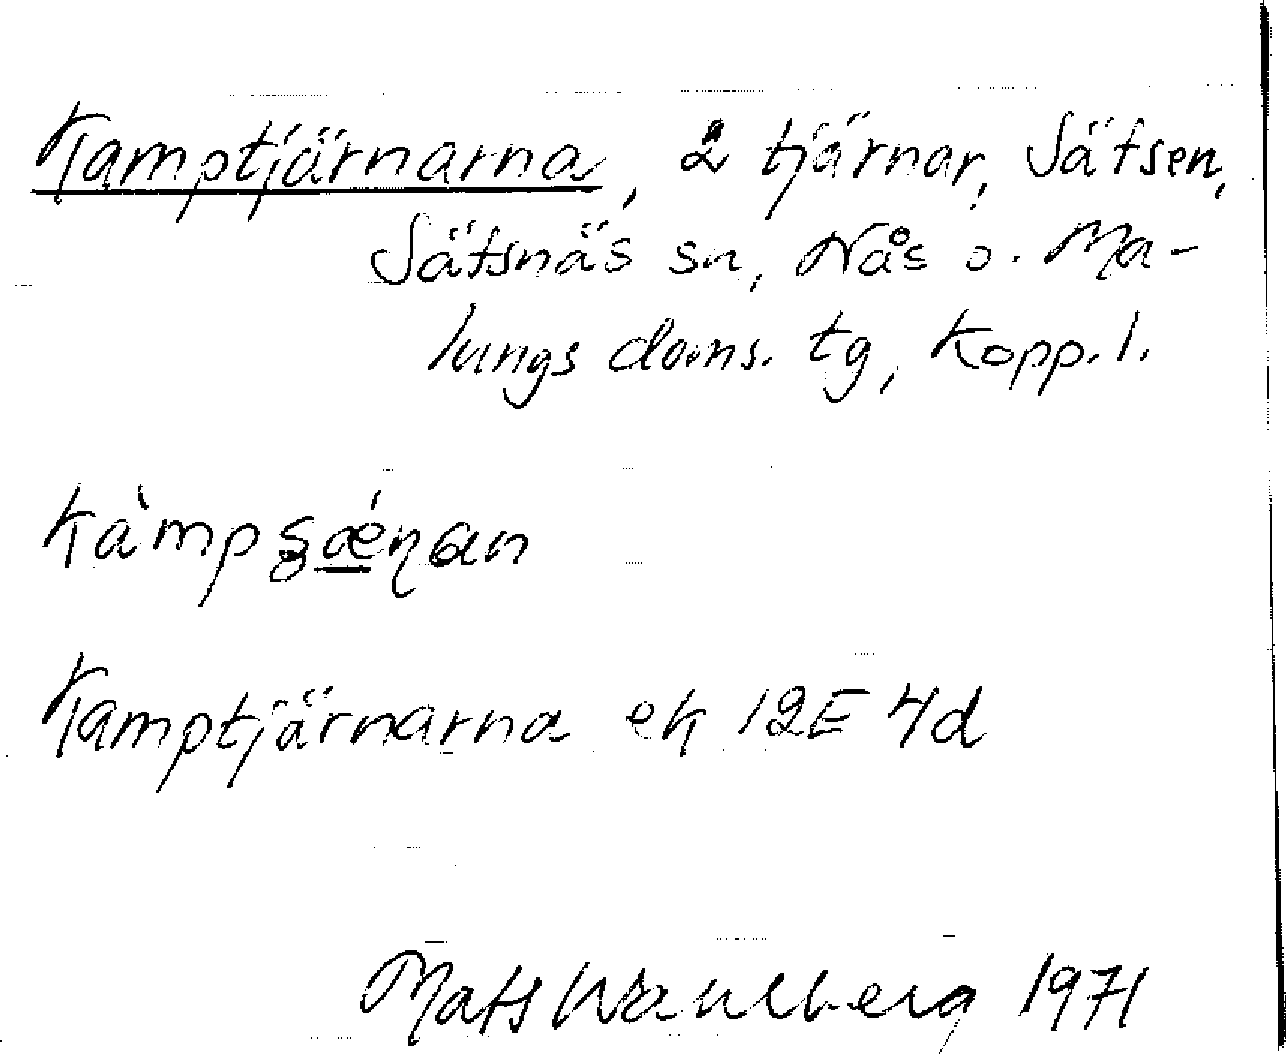 Kamptjärnarna, 2 tjärnar, Sätsen,
Sätsnäs sn, Nås o. Ma-
lungs doms. tg, Kopp. l.
Kamptjärnarna ek 12E 4d
Mats Wahlberg 1971